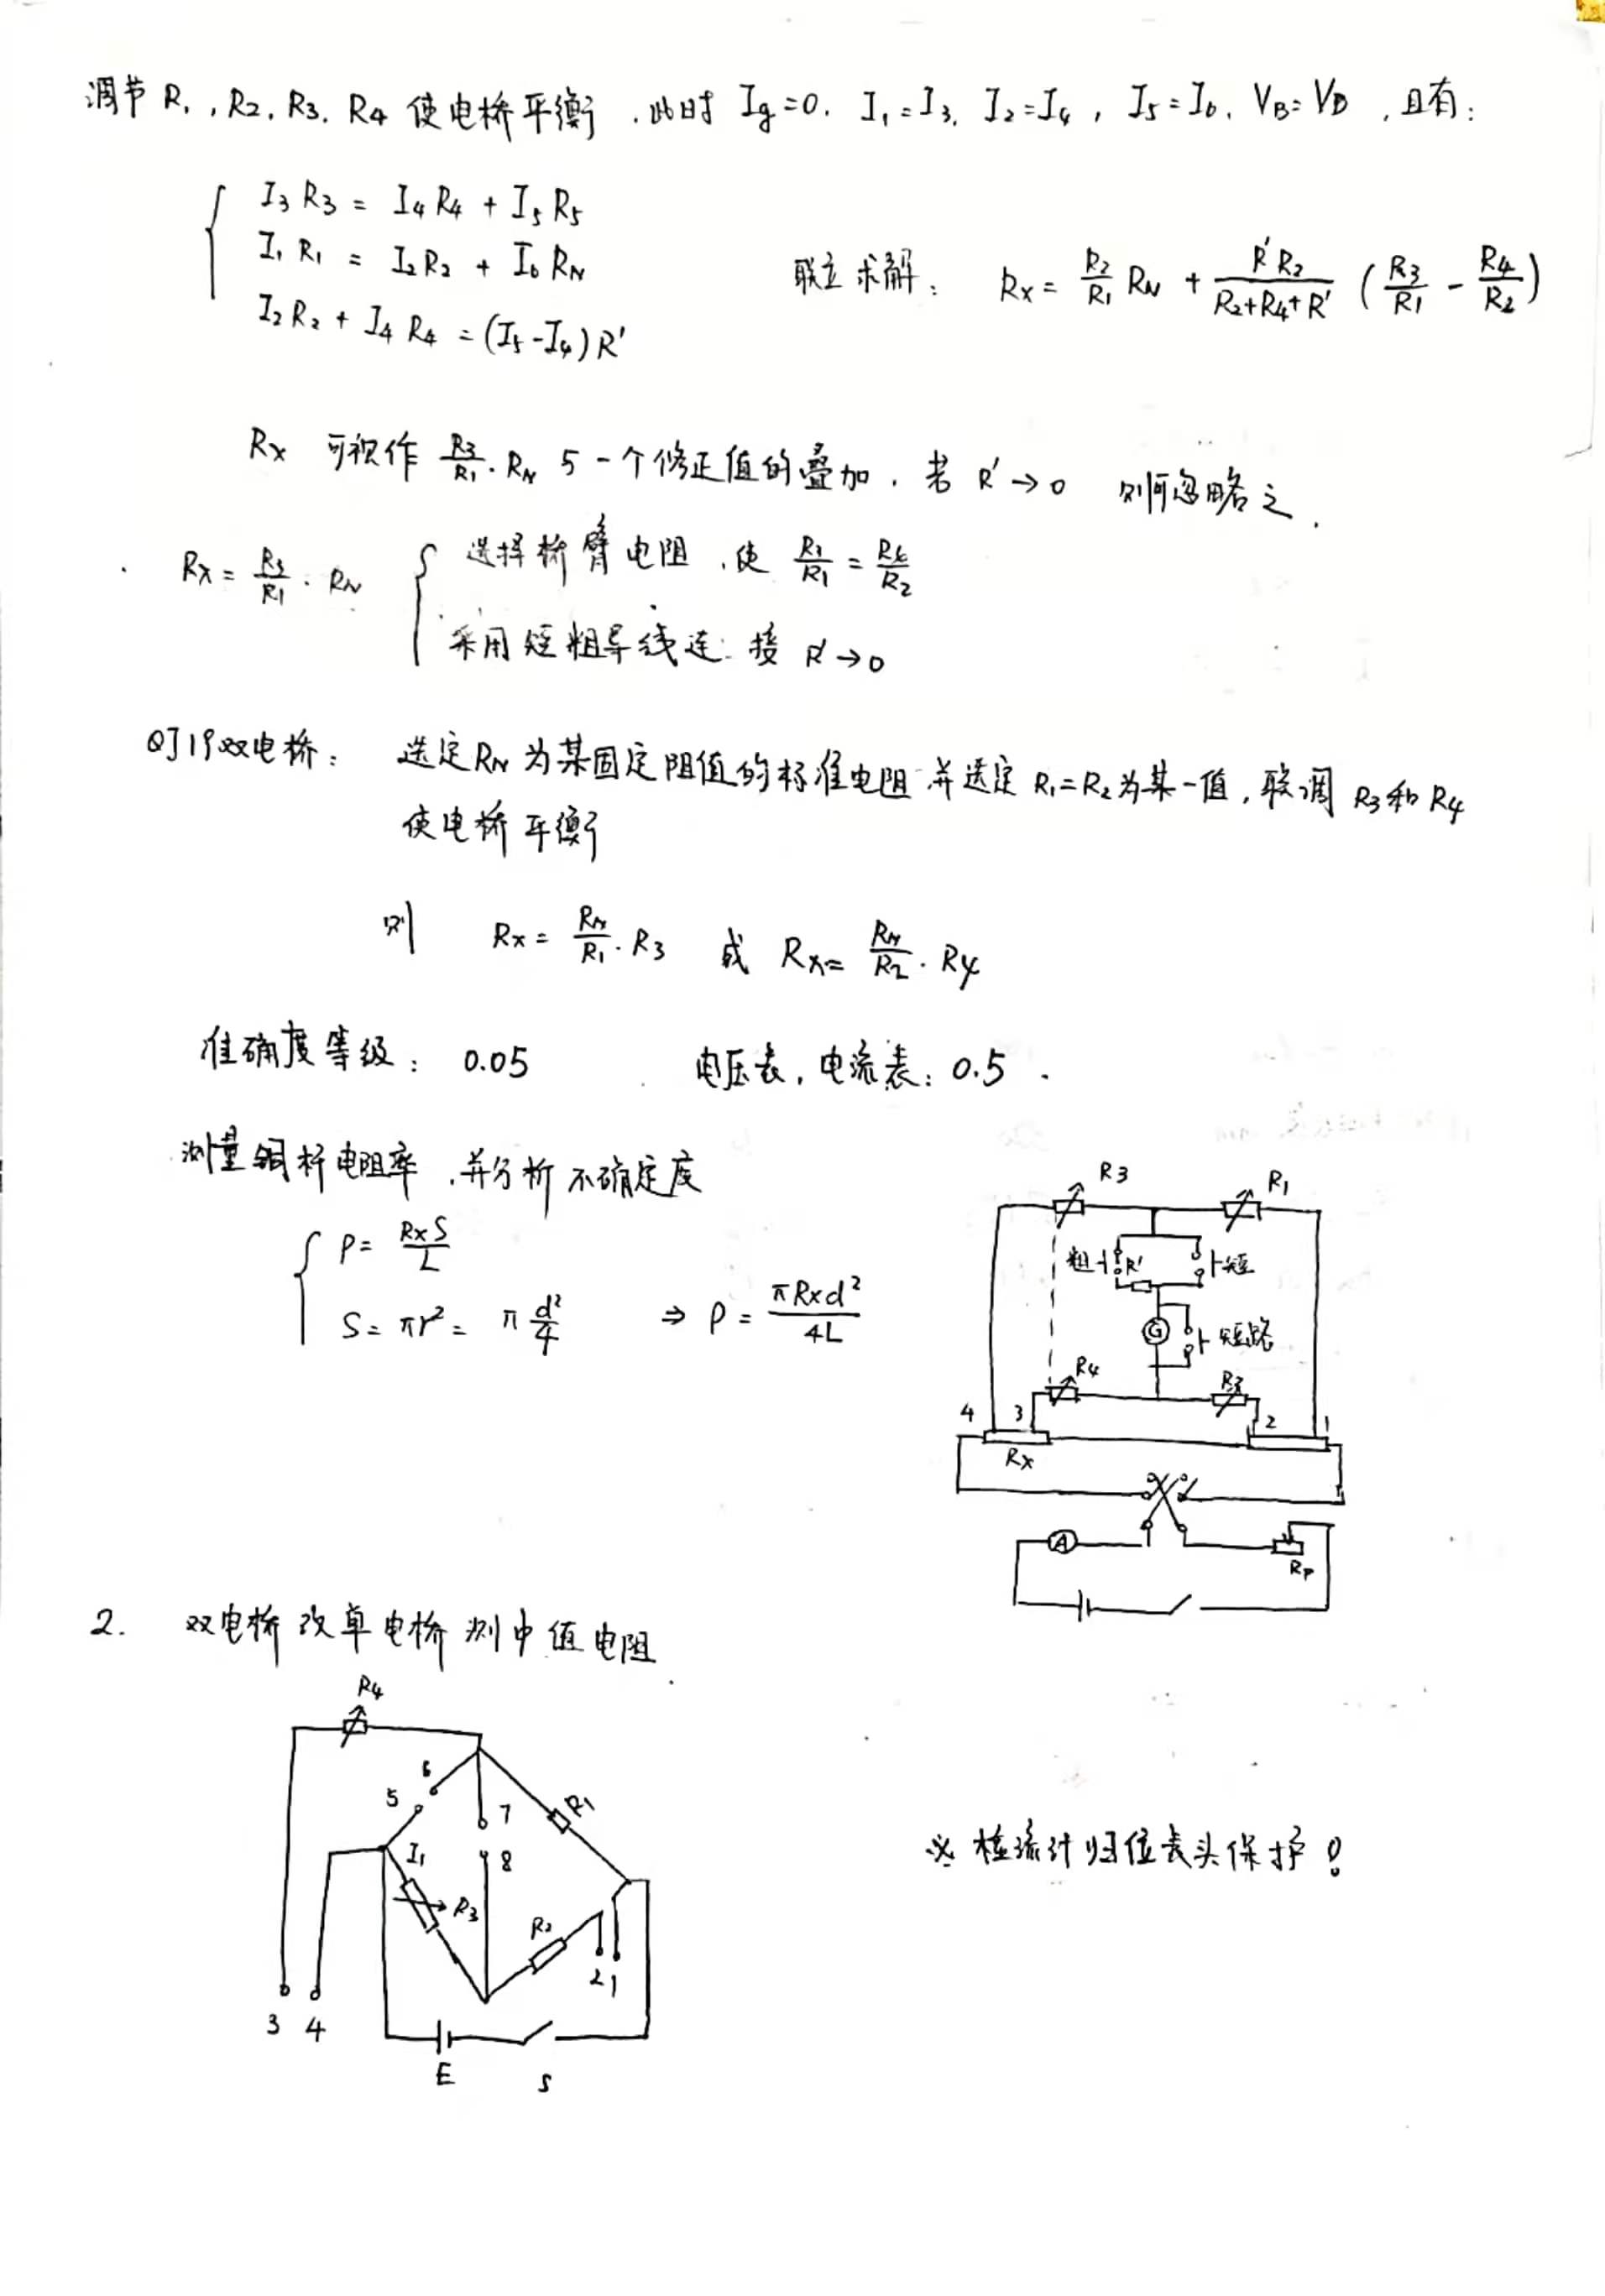 调节 R₁, R2, R3, R4 使电桥平衡, 此时 Ig=0, I₁=I3, I₂=I4, I5=I6, VB=VD, 且有:
I3 R3 = I4 R4 + I5 R5
I₁ R₁ = I₂R₂ + I6 RN
I₂R₂ + I4 R4 = (I5-I4)R'
联立求解: Rx = R2/R1 RN + R'R2/(R2+R4+R') (R3/R1 - R4/R2)
Rx 可视作 R3/R1 · RN 与一个修正值的叠加, 若 R'→0 则可忽略之.
Rx = R3/R1 · RN
选择桥臂电阻, 使 R3/R1 = R4/R2
采用短粗导线连接 R'→0
QJ19双电桥: 选定RN为某固定阻值的标准电阻 并选定 R₁=R₂为某一值, 联调 R3和R4
使电桥平衡
则 Rx = RN/R1 · R3 或 Rx = RN/R2 · R4
准确度等级: 0.05 电压表, 电流表: 0.5.
测量铜杆电阻率, 并分析不确定度
ρ = RxS/L
S = πr² = π d²/4 ⇒ ρ = πRxd²/4L
R3 R1
粗 R' 短
G 短路
R4 R2
4 3 2 1
Rx
A Rp
2. 双电桥改单电桥测中值电阻
R4
6
5 7 R1
I1 8
R3 R2
2 1
3 4
E S
※ 检流计归位表头保护!